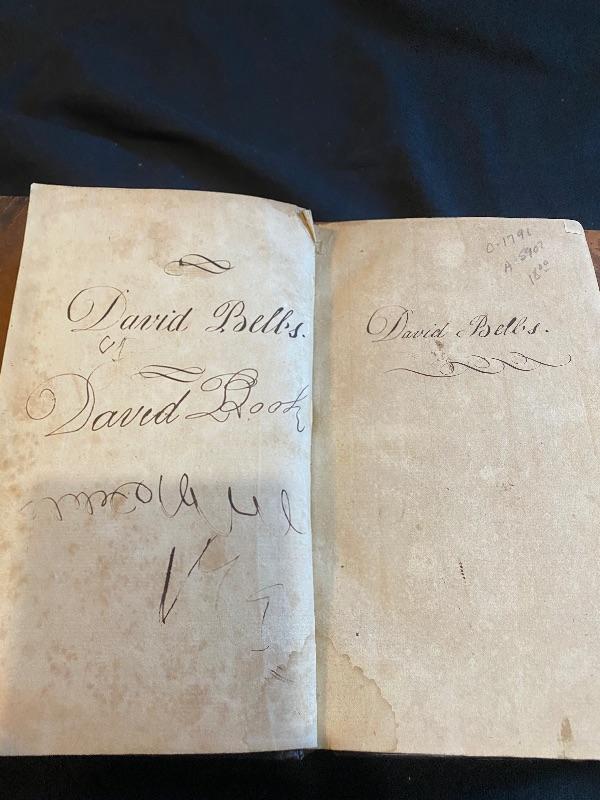 David Bells.
David Book
O-1791
A-5907
18.00
David Bells.